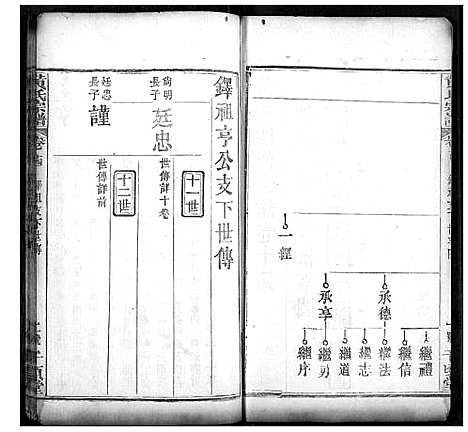 一經
承德
承亨
繼禮
繼信
繼法
繼志
繼道
繼勇
繼序
鐸祖亨公支下世傳
十一世
尚明
長子
廷忠
世傳詳十卷
十二世
廷忠
長子
謹
世傳詳前
黃氏宗譜